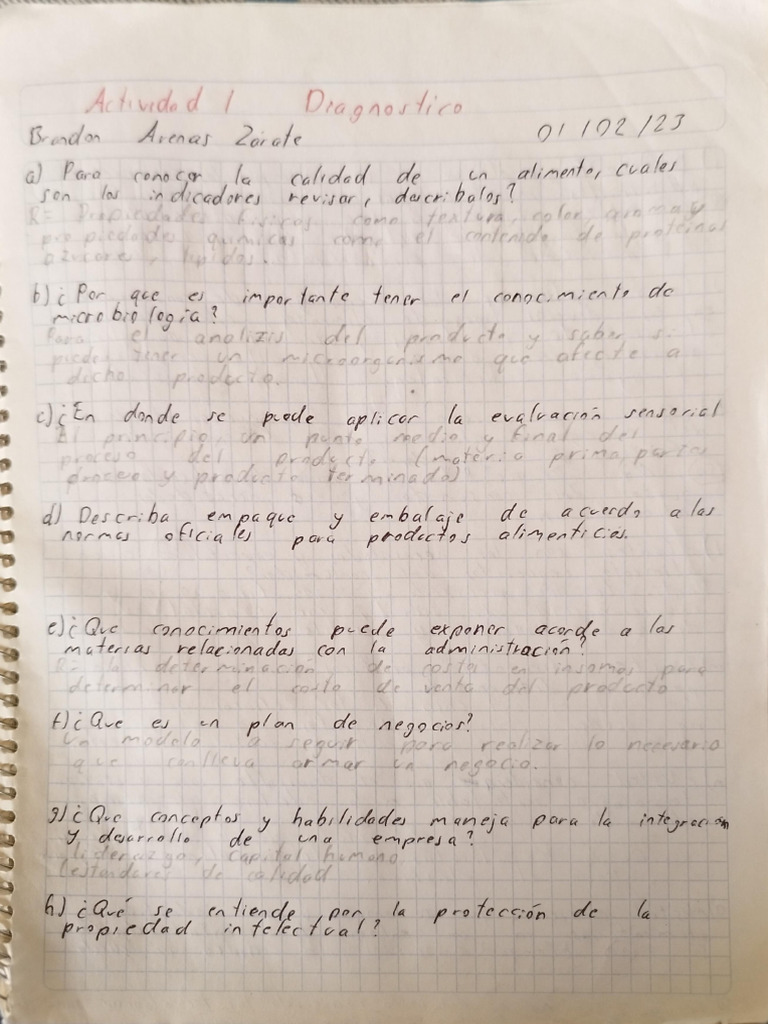 Actividad 1 Diagnostico
Brandon Arenas Zárate 01/02/23
a) Para conocer la calidad de un alimento, cuales
son los indicadores revisar, describalos?
R= Propiedades fisicas como textura, color, aroma y
propiedades quimicas como el contenido de proteinas
azucares, lipidos.
b) ¿Por que es importante tener el conocimiento de
microbiologia?
Para el analizis del producto y saber si
puede tener un microorganismo que afecte a
dicho producto.
c) ¿En donde se puede aplicar la evaluación sensorial
El principio, un punto medio y final del
proceso del producto (materia prima
proceso y producto terminado)
d) Describa empaque y embalaje de acuerdo a las
normas oficiales para productos alimenticios.
e) ¿Que conocimientos puede exponer acorde a las
materias relacionadas con la administración?
R= la determinación de costos en insumos para
determinar el costo de venta del producto
f) ¿Que es un plan de negocios?
Un modelo a seguir para realizar lo necesario
que conlleva armar un negocio.
g) ¿Que conceptos y habilidades maneja para la integración
y desarrollo de una empresa?
liderazgo, capital humano
(estandares de calidad
h) ¿Qué se entiende por la protección de la
propiedad intelectual?